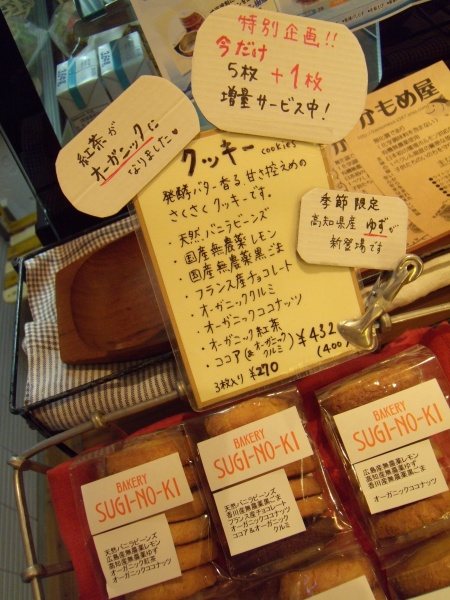 特別企画!!
今だけ
5枚+1枚
増量サービス中!
紅茶が
オーガニックに
なりました♥
かもめ屋
クッキー cookies
発酵バター香る、甘さ控えめの
さくさくクッキーです。
・天然バニラビーンズ
・国産無農薬レモン
国産無農薬黒ごま
・フランス産チョコレート
・オーガニッククルミ
・オーガニックココナッツ
・オーガニック紅茶
・ココア(&オーガニッククルミ)
¥432
(400)
3枚入り ¥270
季節限定
高知県産ゆずが
新登場です
BAKERY
SUGI-NO-KI
天然バニラビーンズ
広島産無農薬レモン
高知産無農薬ゆず
オーガニック紅茶
オーガニックココナッツ
BAKERY
SUGI-NO-KI
天然バニラビーンズ
香川産無農薬黒ごま
フランス産チョコレート
オーガニックココナッツ
ココア&オーガニック
クルミ
BAKERY
SUGI-NO-KI
広島産無農薬レモン
高知産無農薬ゆず
香川産無農薬黒ごま
オーガニックココナッツ